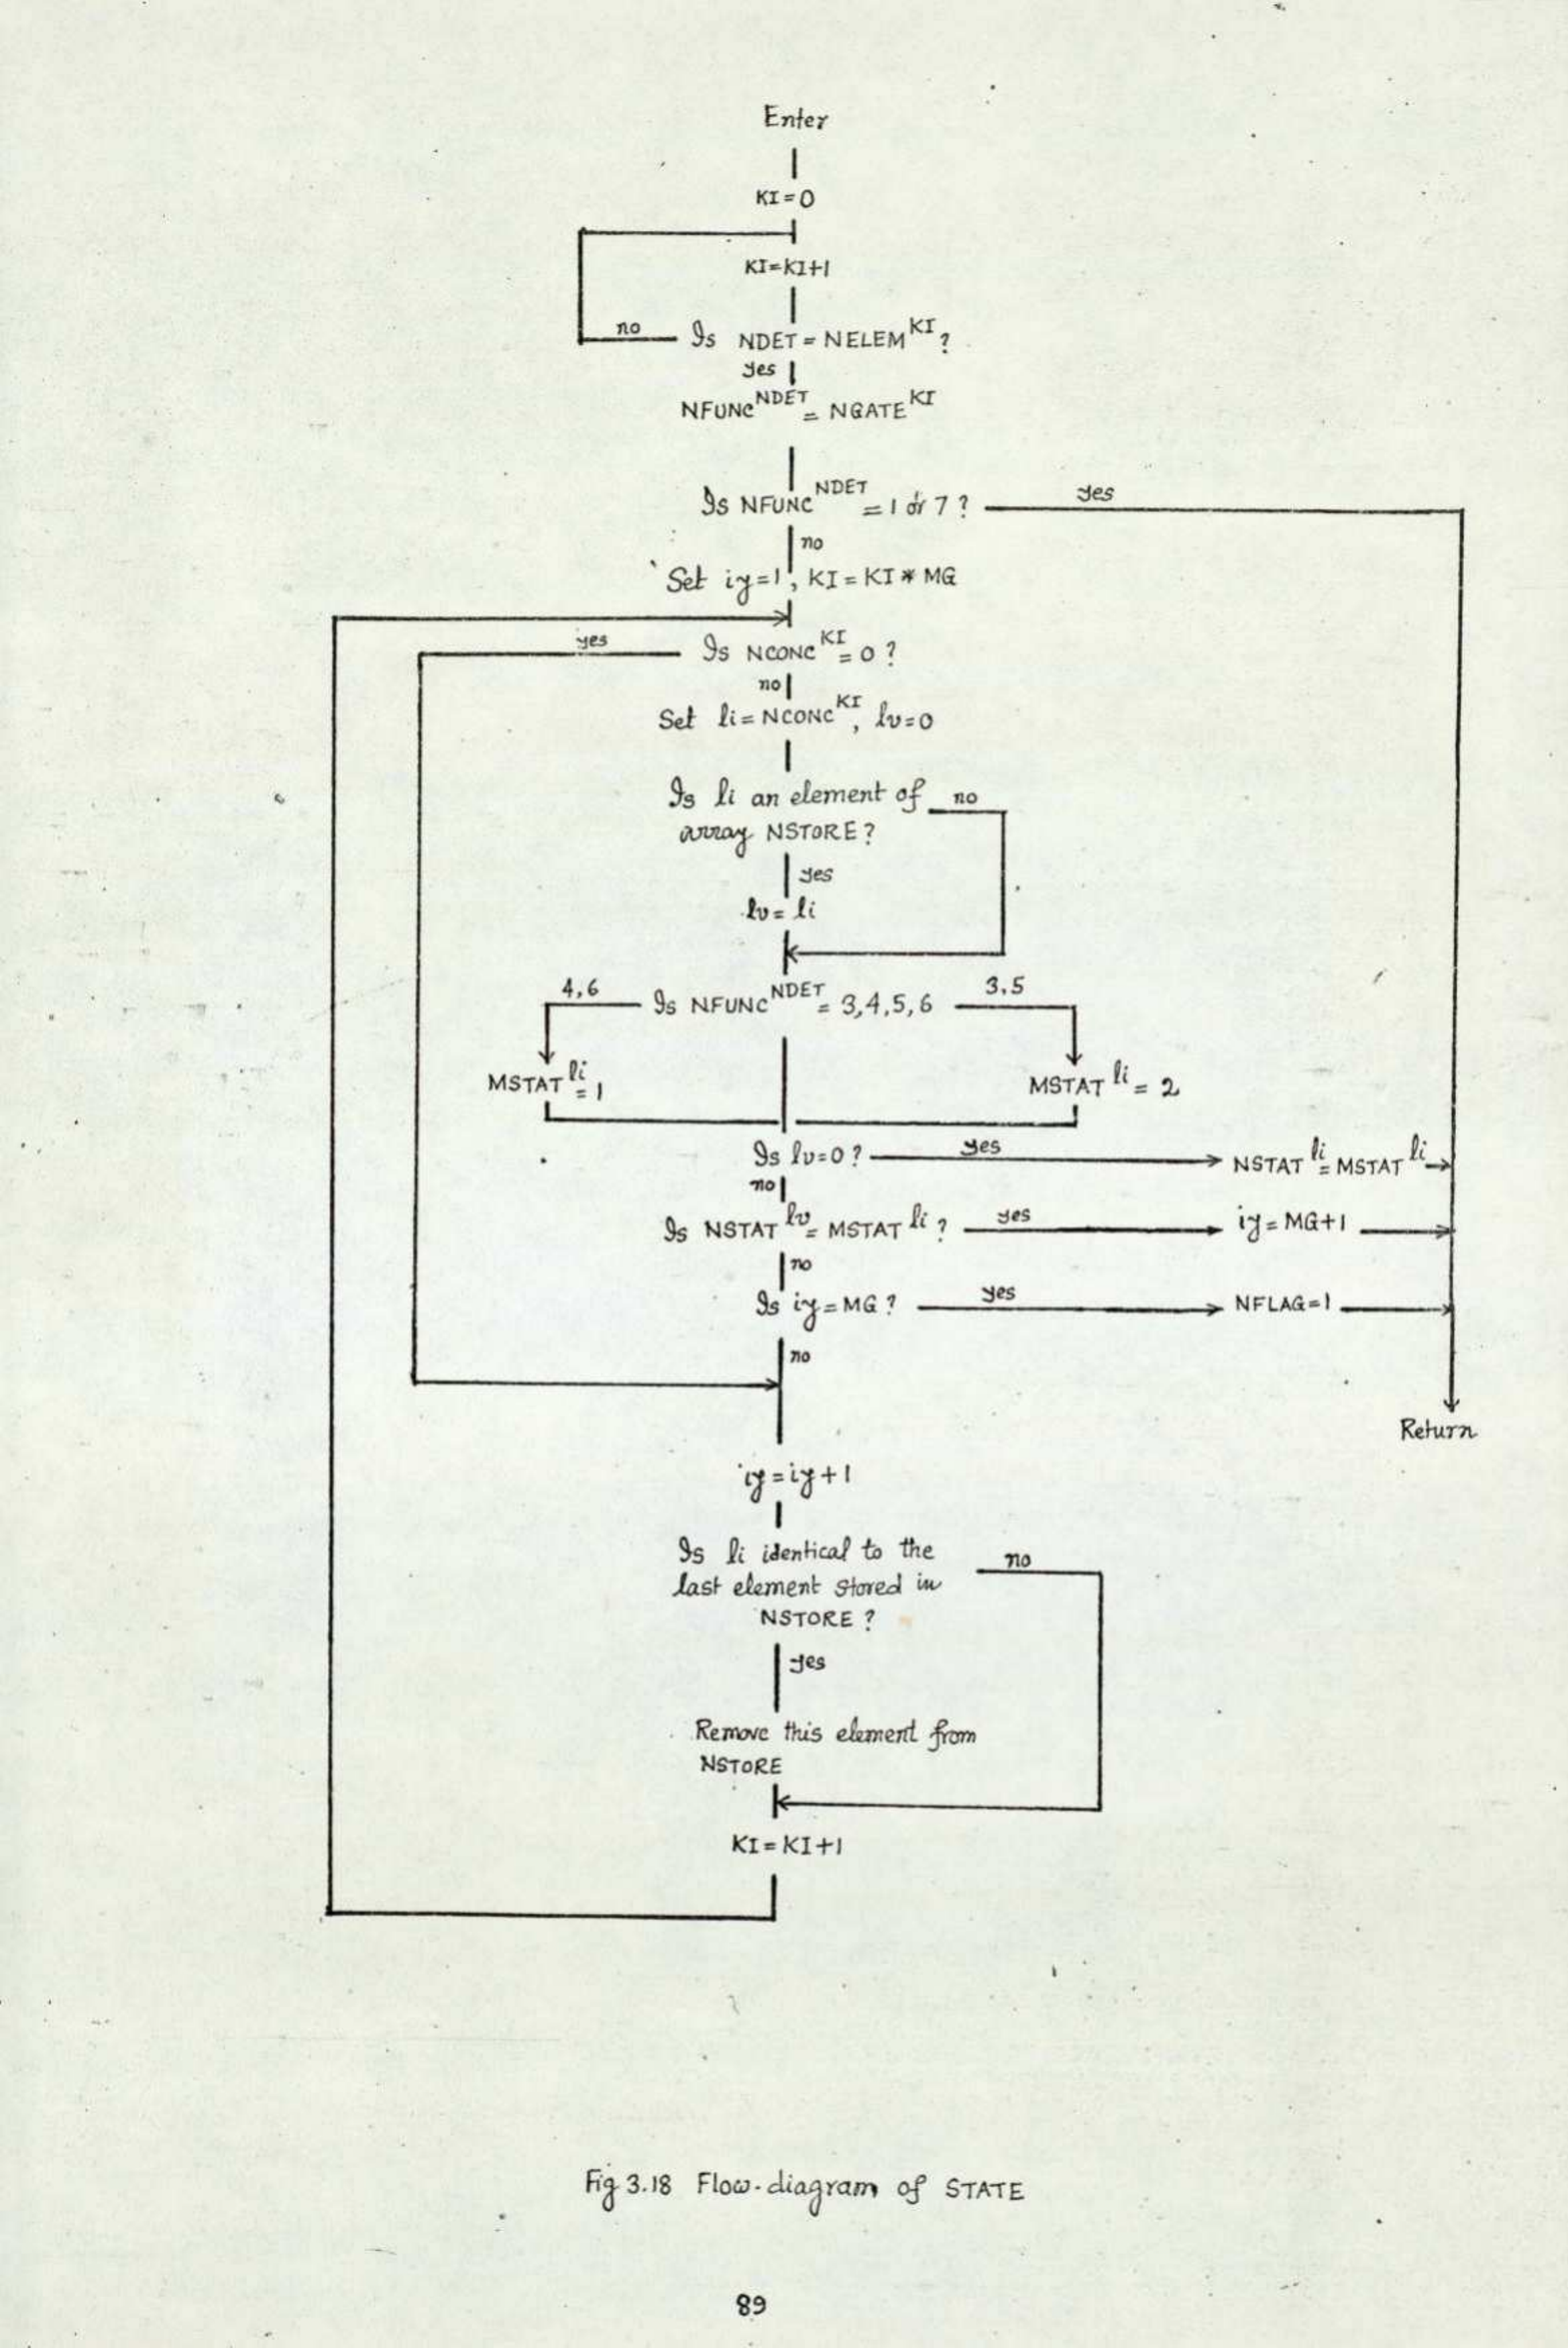 Enter
KI=0
KI=KI+1
no Is NDET = NELEM^KI ?
yes
NFUNC^NDET = NGATE^KI
Is NFUNC^NDET = 1 or 7 ? yes
no
Set iy=1, KI = KI * MG
yes Is NCONC^KI = 0 ?
no
Set li = NCONC^KI, lv=0
Is li an element of no
array NSTORE ?
yes
lv = li
4,6 Is NFUNC^NDET = 3,4,5,6 3,5
MSTAT^li = 1 MSTAT^li = 2
Is lv=0 ? yes NSTAT^li = MSTAT^li
no
Is NSTAT^lv = MSTAT^li ? yes iy = MG+1
no
Is iy = MG ? yes NFLAG=1
no
Return
iy = iy + 1
Is li identical to the no
last element stored in
NSTORE ?
yes
Remove this element from
NSTORE
KI = KI+1
Fig 3.18 Flow-diagram of STATE
89